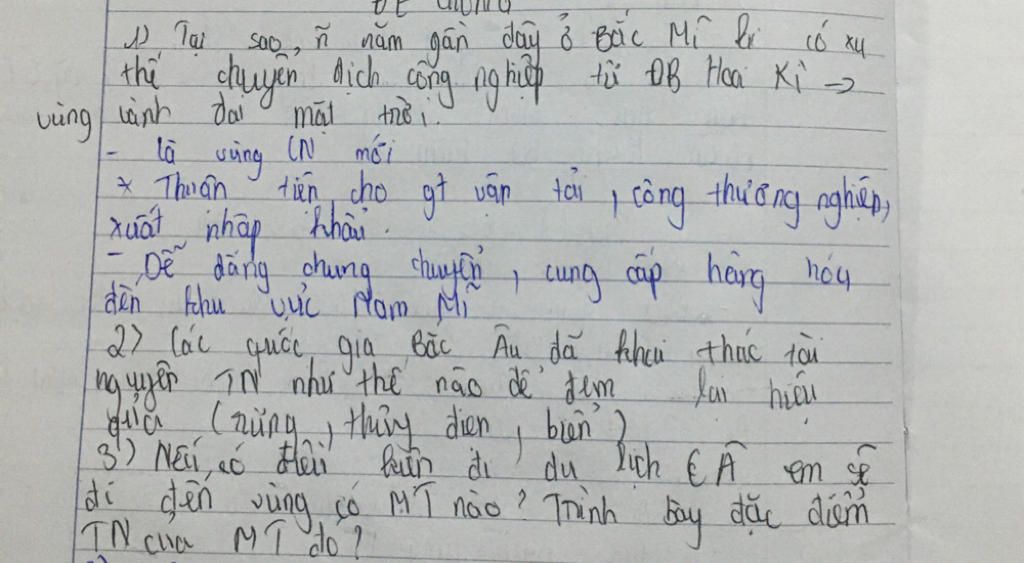 ĐỀ CƯƠNG
1) Tại sao, ñ năm gần đây ở Bắc Mĩ lại có xu
thế chuyển dịch công nghiệp từ ĐB Hoa Kì →
vùng vành đai mặt trời.
- là vùng CN mới
* Thuận tiện cho gt vận tải, công thương nghiệp,
xuất nhập khẩu.
- Dễ dáng chung chuyển, cung cấp hàng hóa
đến khu vực Nam Mĩ
2) Các quốc gia Bắc Âu đã khai thác tài
nguyên TN như thế nào để đem lại hiệu
quả (rừng, thủy điện, biển)
3) Nếu có điều kiện đi du lịch CÂ em sẽ
đi đến vùng có MT nào? Trình bày đặc điểm
TN của MT đó?